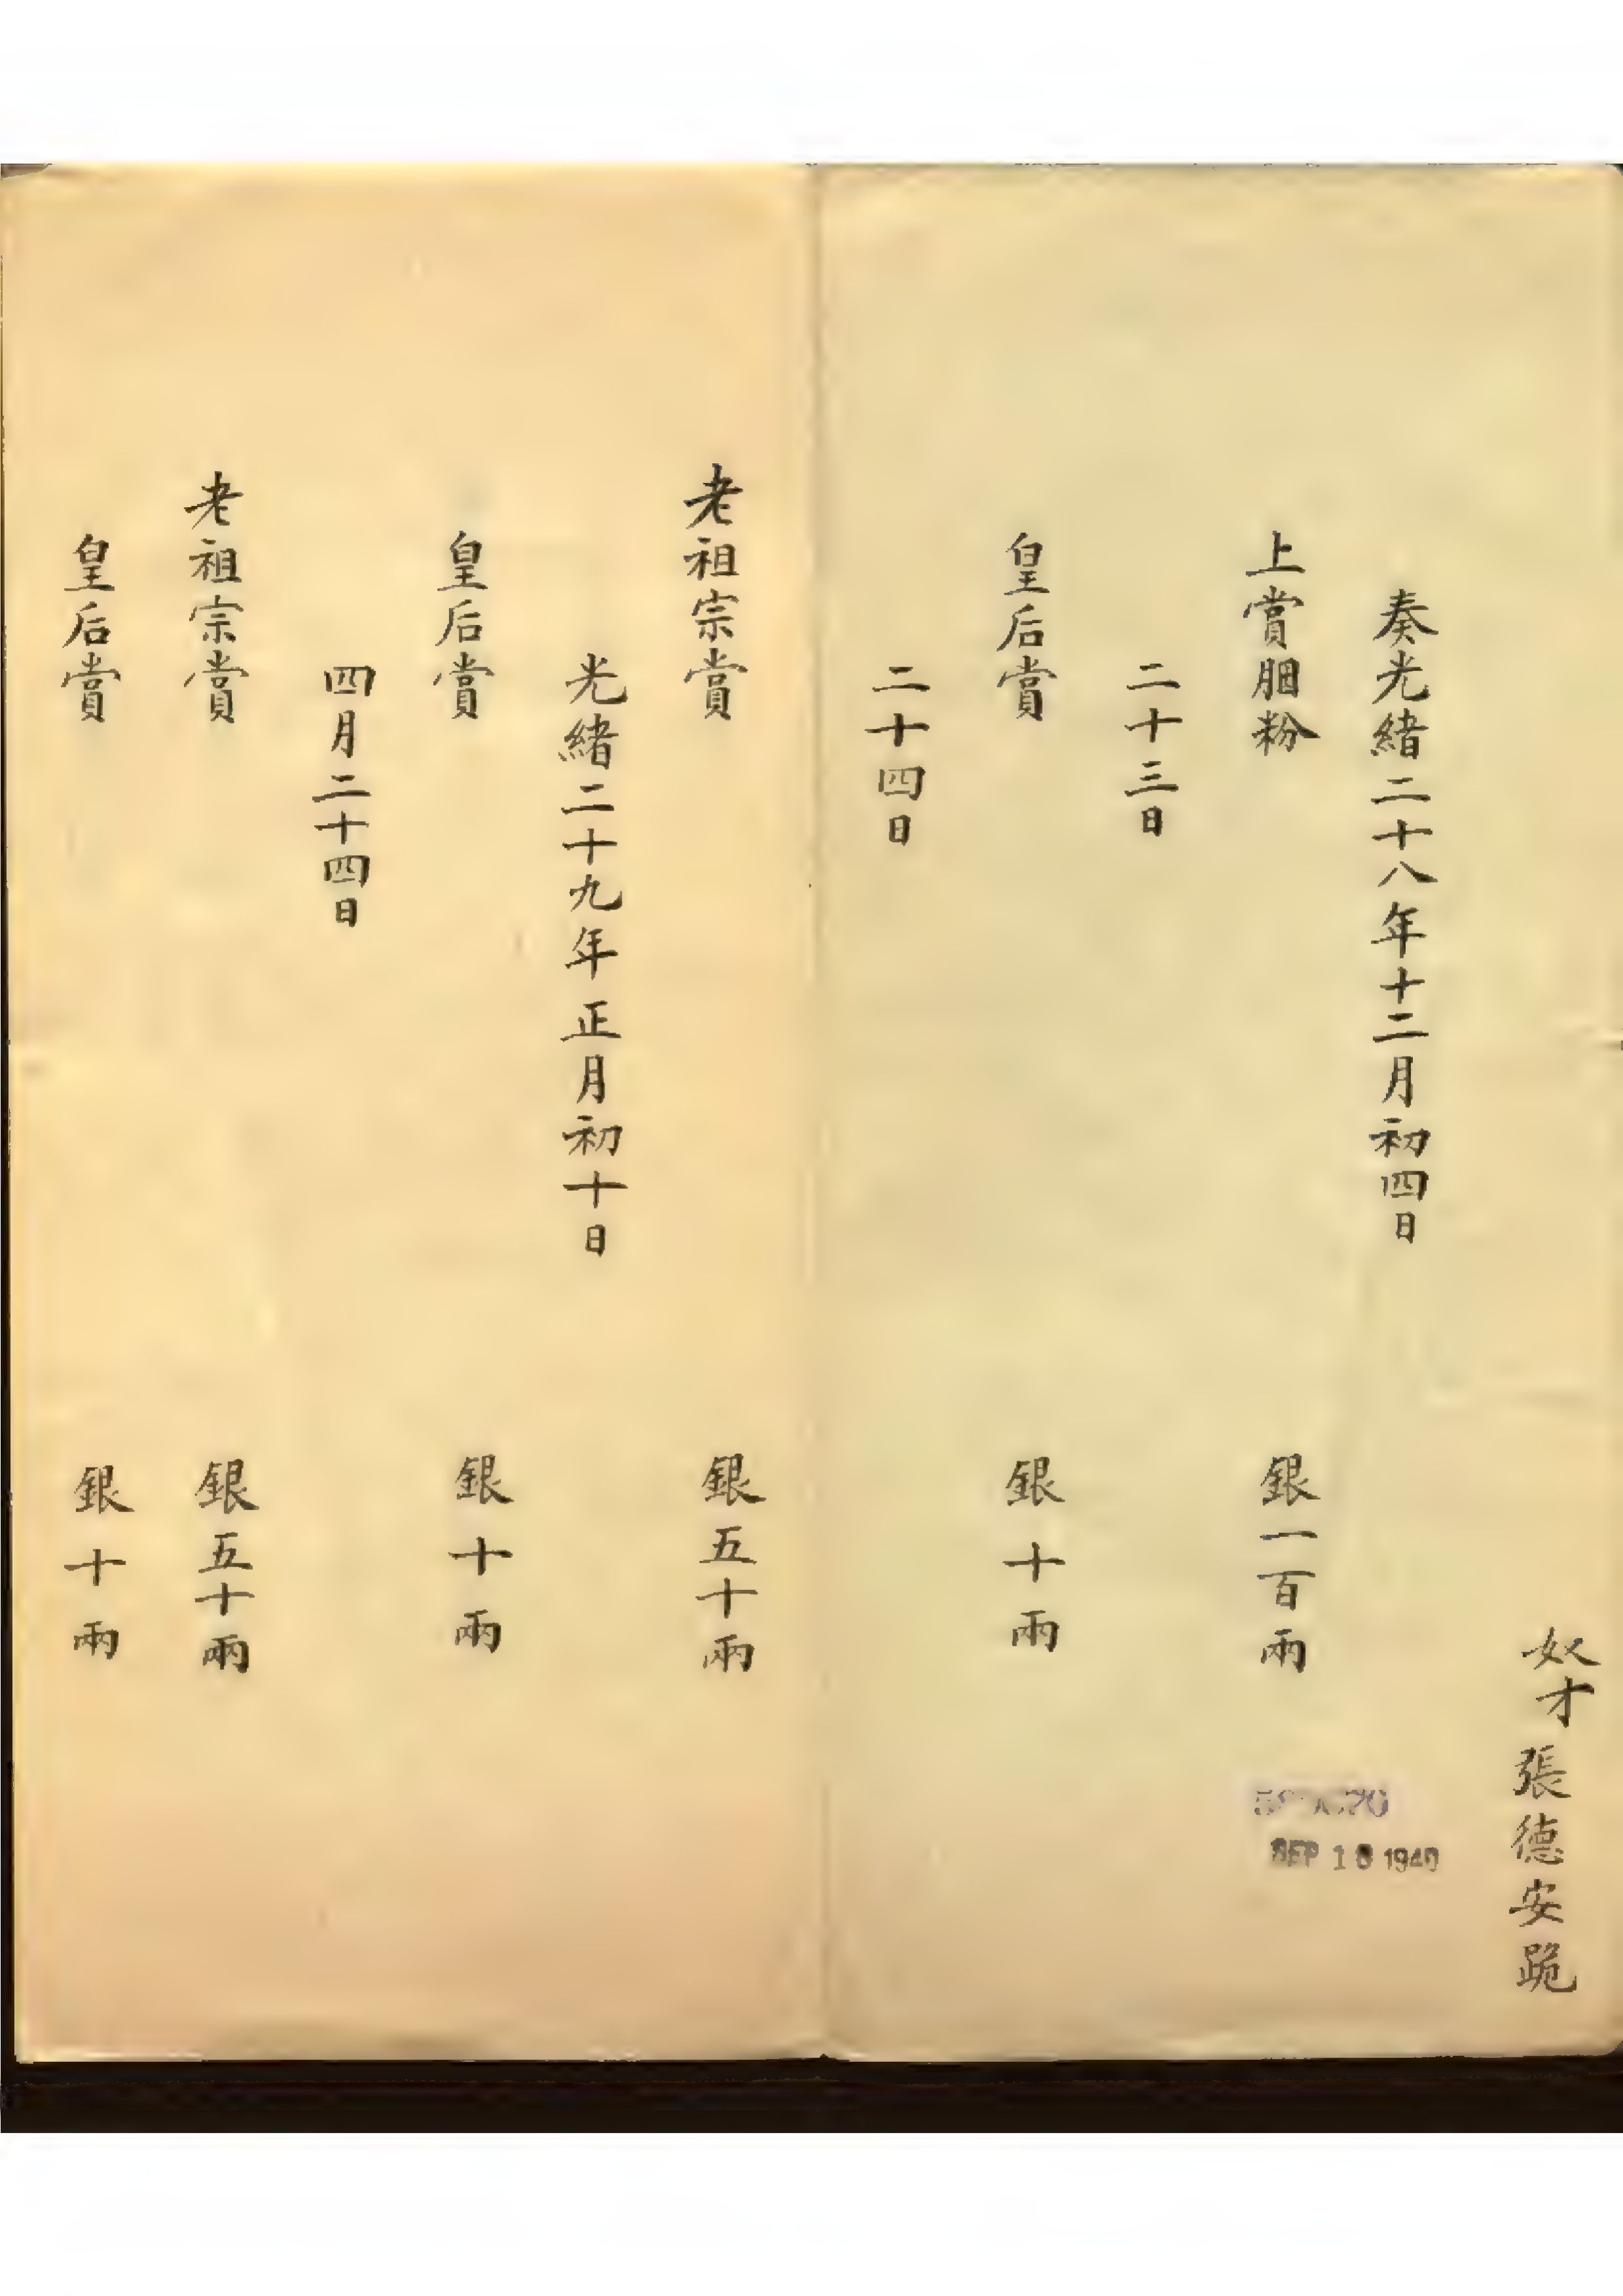 奴才張德安跪
奏光緒二十八年十二月初四日
上賞胭粉 銀一百兩
二十三日
皇后賞 銀十兩
二十四日
老祖宗賞 銀五十兩
光緒二十九年正月初十日
皇后賞 銀十兩
四月二十四日
老祖宗賞 銀五十兩
皇后賞 銀十兩
SEP 18 1940